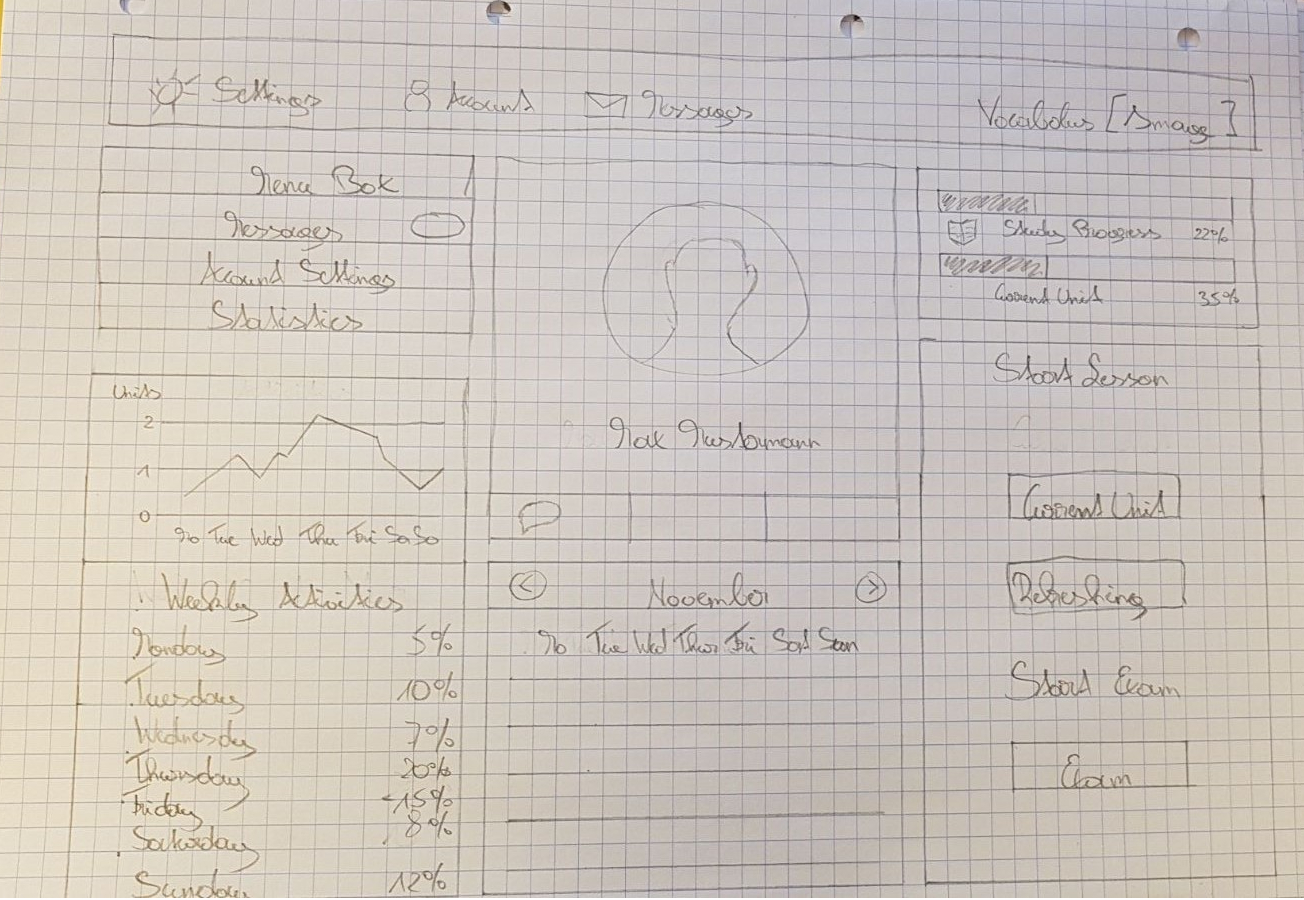 Settings Account Messages
Menu Box
Messages
Account Settings
Statistics
Units
2
1
0
Mo Tue Wed Thu Fri Sa So
Weekly Activities
Monday 5%
Tuesday 10%
Wednesday 7%
Thursday 20%
Friday 15%
Saturday 8%
Sunday 12%
Max Mustermann
November
Mo Tue Wed Thur Fri Sat Sun
Study Progress 22%
Current Unit 35%
Start Lesson
Current Unit
Refreshing
Start Exam
Exam